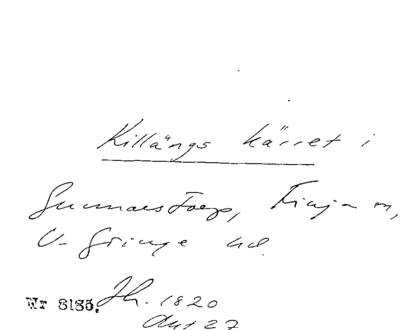 Killängs kärret i
Gunnarstorp,
V. Göinge hd.
Nr 8185. Jh. 1820
Akt 27